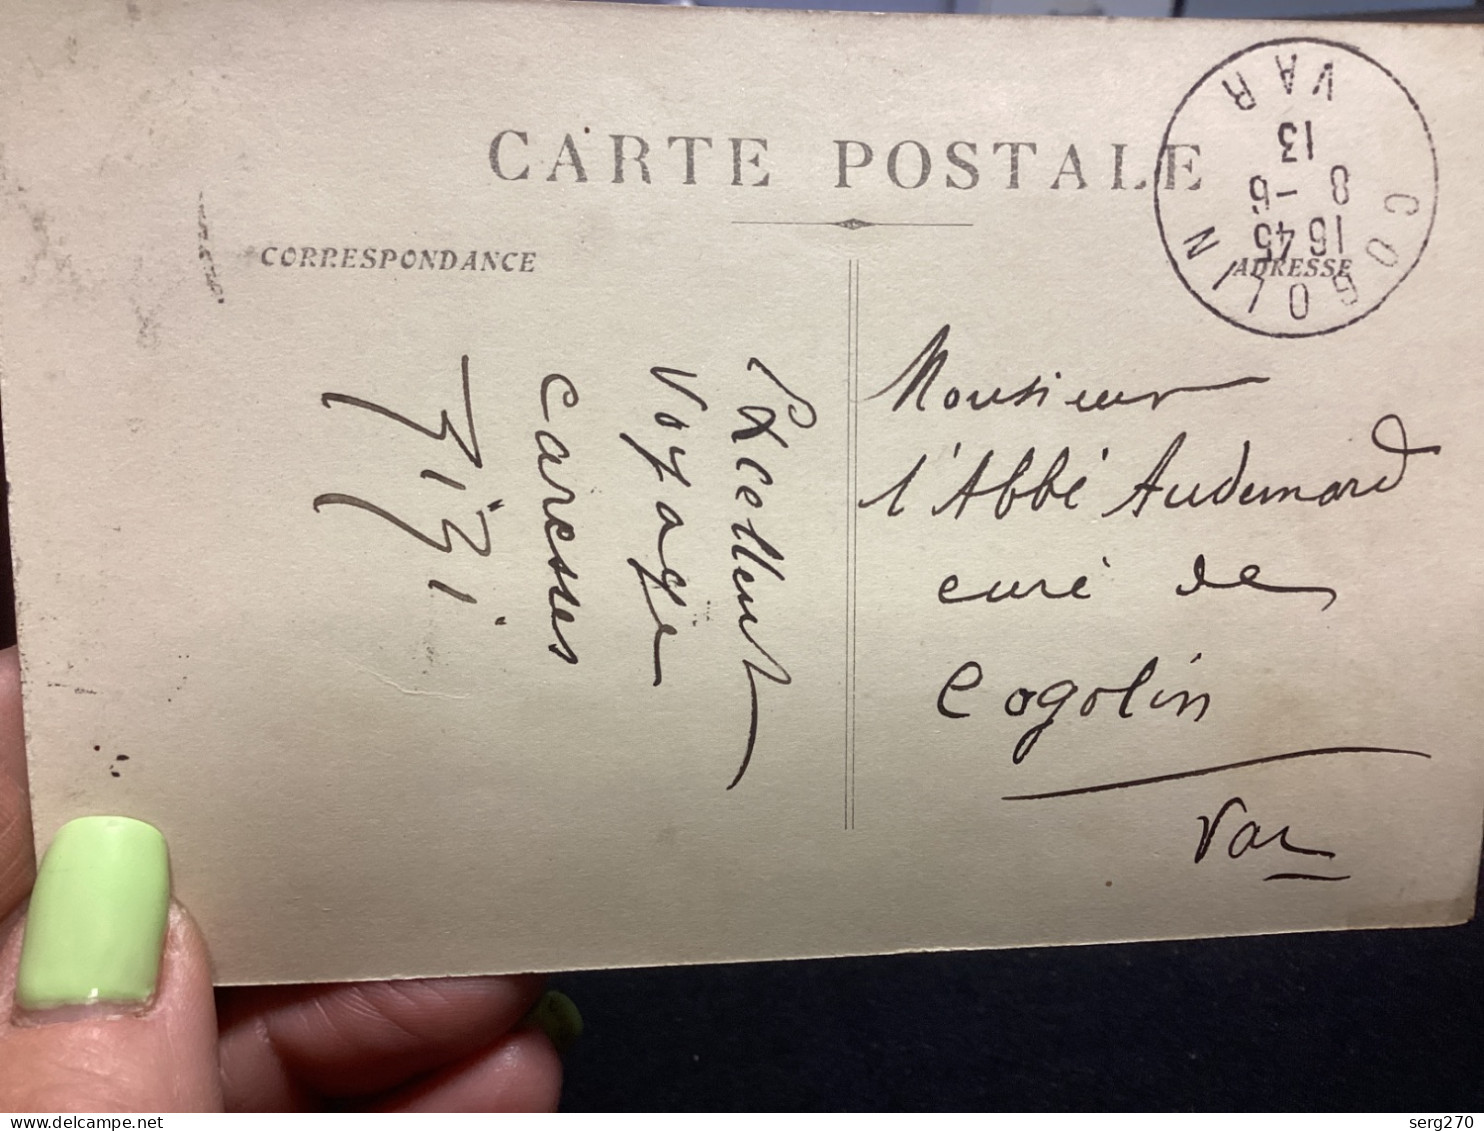 CARTE POSTALE
CORRESPONDANCE
ADRESSE
COGOLIN
16 45
8 - 6
13
VAR
Excellent
Voyage
Caresses
Zizi.
Monsieur
l'Abbé Audemard
curé de
Cogolin
Var
serg270